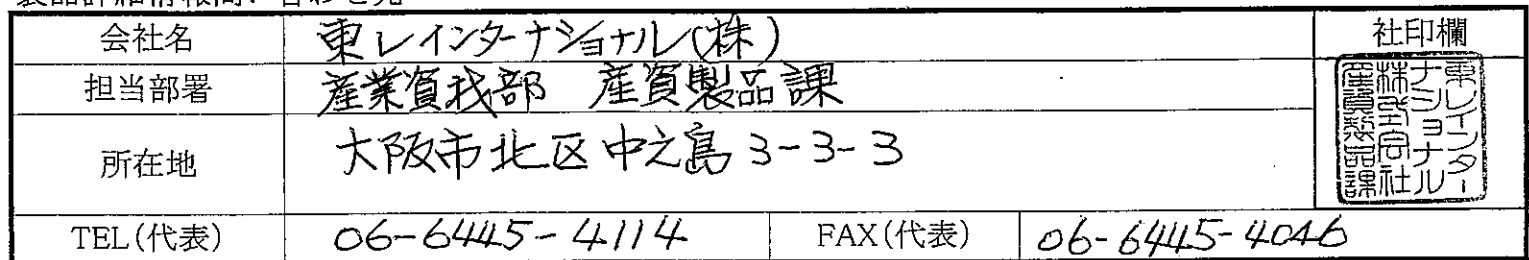 製品詳細情報問い合わせ先
会社名 東レインターナショナル(株) 社印欄
担当部署 産業資材部 産資製品課
東レインターナショナル株式会社産資製品課
所在地 大阪市北区中之島3-3-3
TEL(代表) 06-6445-4114 FAX(代表) 06-6445-4046